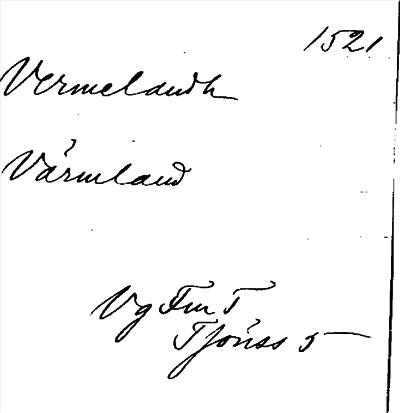 1521
Vermelandh
Värmland
Vg FmT
Tfönss 5